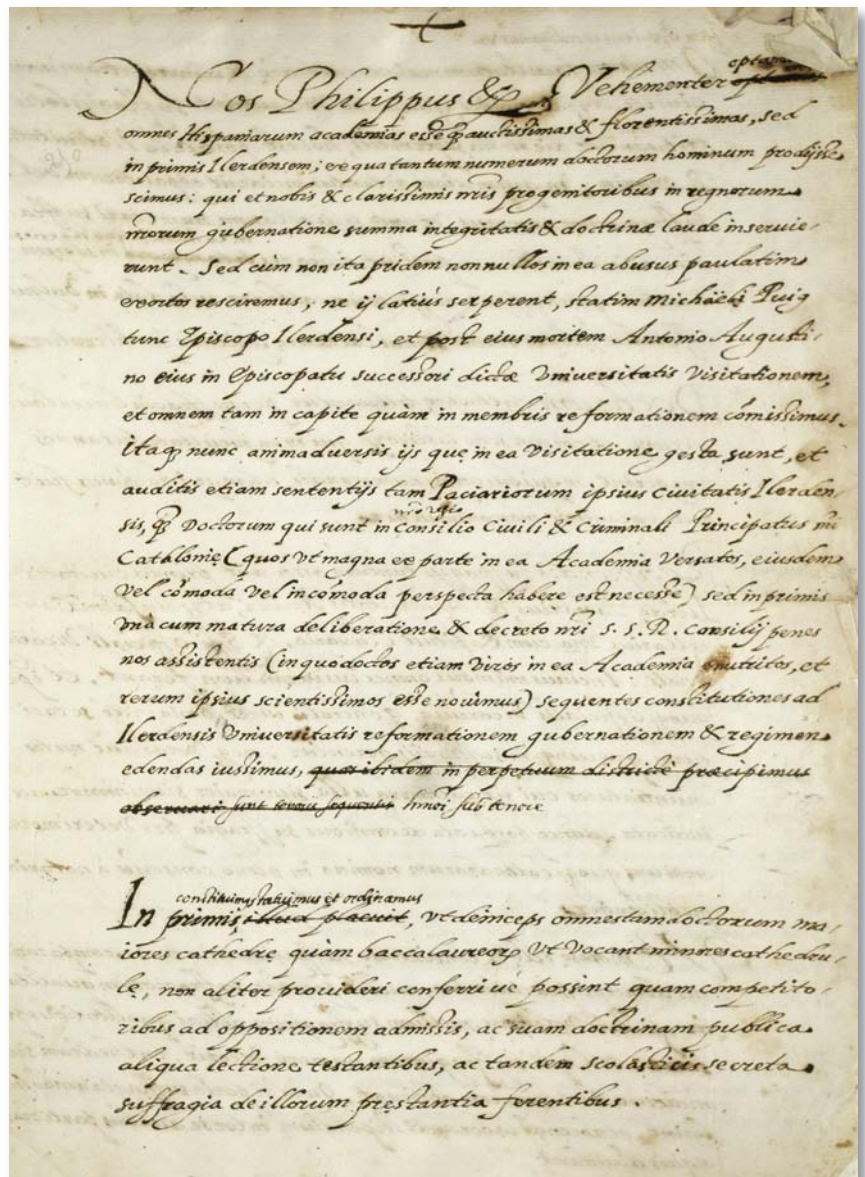 Nos Philippus &c. Vehementer optamus
omnes Hispaniarum academias esse q̃ auctissimas & florentissimas, sed
in primis Ilerdensem; ex qua tantum numerum doctorum hominum prodijsse
scimus: qui et nobis & clarissimis nr̃is progenitoribus in regnorum
nr̃orum gubernatione summa integritatis & doctrinæ laude inservie/
runt. Sed cùm non ita pridem nonnullos in ea abusus paulatim
exortos resciremus, ne ij latiùs serperent, statim Michaëli Puig
tunc Episcopo Ilerdensi, et post eius mortem Antonio Augusti/
no eius in Episcopatu successori dictæ Universitatis Visitationem,
et omnem tam in capite quàm in membris reformationem cõmissimus.
itaq; nunc animadversis ijs quę in ea Visitatione gesta sunt, et
auditis etiam sententijs tam Paciariorum ipsius Civitatis Ilerden/
sis, q̃ Doctorum qui sunt in nr̃o regio Consilio Civili & Criminali Principatus nr̃i
Cathlonię (quos vt magna ex parte in ea Academia Versatos, eiusdem
vel cõmoda vel incõmoda perspecta habere est necesse) sed in primis
vna cum matura deliberatione & decreto nr̃i S. S. R. Consilij penes
nos assistentis (in quo doctos etiam Viros in ea Academia enutritos, et
rerum ipsius scientissimos esse novimus) sequentes constitutiones ad
Ilerdensis Vniversitatis reformationem gubernationem & regimen
edendas iussimus, quas ibidem in perpetuum districtè præcipimus
observari sunt tenoris sequentis hm̃oi sub tenore
constituimus statuimus et ordinamus
In primis, illud placuit, vt deinceps omnes tam doctorum ma/
iores cathedrę quàm baccalaureorꝝ vt vocant minores cathedru/
lę, non aliter provideri conferri vè possint quam competito/
ribus ad oppositionem admissis, ac suam doctrinam publica
aliqua lectione testantibus, ac tandem scolasticis secreta
suffragia de illorum pręstantia ferentibus.